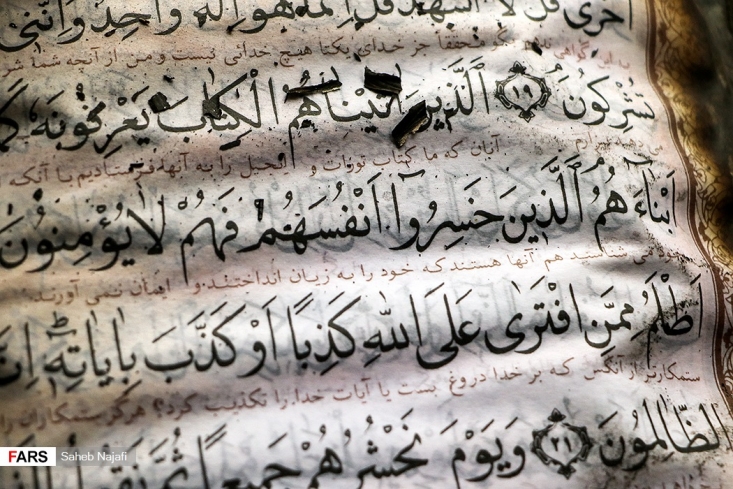 اُخْرٰى قُلْ لَا اَشْهَدُ قُلْ اِنَّمَا هُوَ اِلٰهٌ وَاحِدٌ وَاِنَّنى
بگو محققا جز خدای یکتا هیچ خدائی نیست و من از آنچه شما
تُشْرِكُونَ ﴿١٩﴾ اَلَّذينَ اتَيْنَاهُمُ الْكِتَابَ يَعْرِفُونَهُ
آنان که ما کتاب تورات و انجیل را به آنها فرستادیم با آنکه
اَبْنَاءَهُمُ الَّذينَ خَسِرُوا اَنْفُسَهُمْ فَهُمْ لَا يُؤْمِنُونَ
آنها هستند که خود را به زیان انداختند و ایمان نمی آورند
اَظْلَمُ مِمَّنِ افْتَرٰى عَلَى اللّٰهِ كَذِبًا اَوْ كَذَّبَ بِاٰيَاتِهِ
ستمکارتر از آنکس که بر خدا دروغ بست یا آیات خدا را تکذیب کرد؟ هرگز ستمکاران را
الظَّالِمُونَ ﴿٢١﴾ وَيَوْمَ نَحْشُرُهُمْ جَميعًا ثُمَّ نَقُولُ
FARS Saheb Najafi